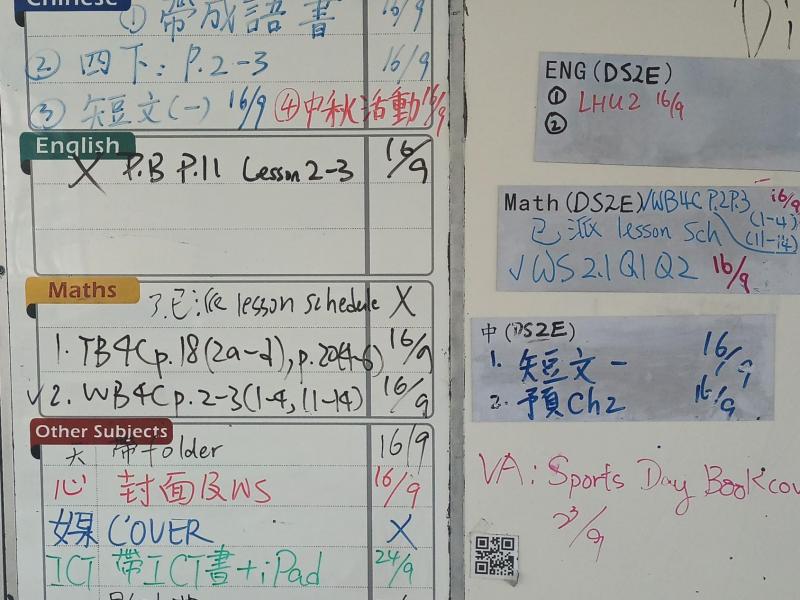 Chinese
① 帶成語書 16/9
② 四下: P.2-3 16/9
③ 短文(一) 16/9 ④中秋活動 16/9
English
X P.B P.11 Lesson 2-3 16/9
Maths
3.已派 lesson schedule X
1. TB4C p.18(2a-d), p.20(4-6) 16/9
✓2. WB4C p.2-3(1-4, 11-14) 16/9
Other Subjects
帶folder 16/9
心 封面及WS 16/9
媒 COVER X
ICT 帶ICT書+iPad 24/9
ENG(DS2E)
① LHU2 16/9
②
Math(DS2E) ✓WB4C P.2P.3 16/9
(1-4)
已派 lesson sch (11-14)
✓WS 2.1 Q1 Q2 16/9
中(DS2E)
1. 短文一 16/9
2. 預Ch2 16/9
VA: Sports Day Bookcov
23/9